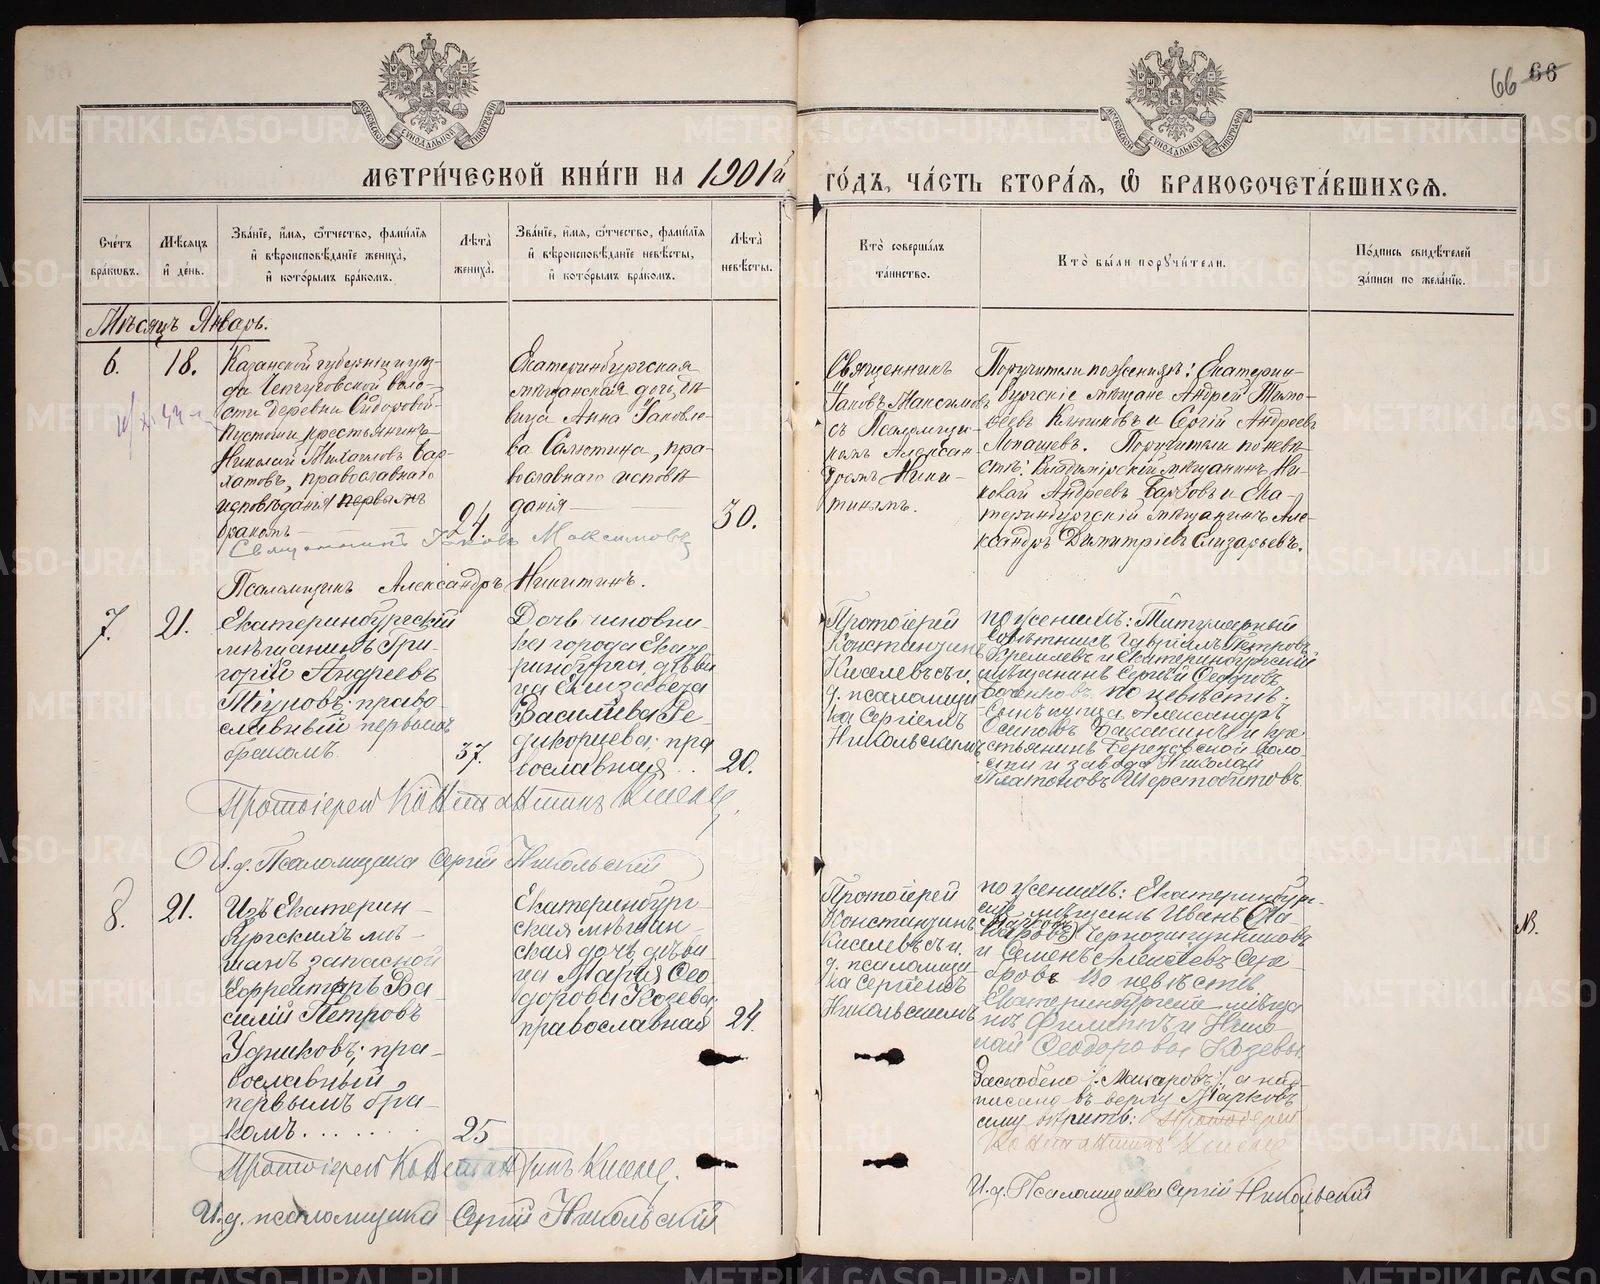 66 66
МЕТРИ́ЧЕСКОЙ КНИ́ГИ НА 1901й ГО́ДЪ, ЧА́СТЬ ВТОРА́Я, Ѿ БРАКОСОЧЕТА́ВШИХСЯ.
Сче́тъ бра́кωвъ.
Мѣ́сяцъ и҆ де́нь.
Зва́нїе, и҆́мя, ѻ҆́тчество, фами́лїя и҆ вѣроисповѣ́данїе жениха̀, и҆ кото́рымъ бра́комъ.
Лѣ́та̀ жениха̀.
Зва́нїе, и҆́мя, ѻ҆́тчество, фами́лїя и҆ вѣроисповѣ́данїе невѣ́сты, и҆ кото́рымъ бра́комъ.
Лѣ́та̀ невѣ́сты.
Кто̀ соверша́лъ та́инство.
Кто̀ бы́ли порꙋчи́тели.
По́дпись свидѣ́телей за́писи по жела́нїю.
Мѣсяцъ Январь.
6.
18.
Казанской губерніи и уѣз-
да Чепчуговской воло-
сти деревни Сидоровой
Пустоши крестьянинъ
Николай Михаиловъ Бар-
хатовъ, православнаго
исповѣданія первымъ
бракомъ
24.
Екатеринбургская
мѣщанская дочь, дѣ-
вица Анна Іаковле-
ва Салютина, пра-
вославнаго исповѣ-
данія
30.
Священникъ
Іаковъ Максимовъ
съ Псаломщи-
комъ Алексан
дромъ Ники-
тинымъ.
Поручители по женихѣ: Екатерин-
бургскіе мѣщане Андрей Тимо-
феевъ Клюшковъ и Сергій Андреевъ
Лопашевъ. Поручители по невѣ-
стѣ: Владимірскій мѣщанинъ Ни-
колай Андреевъ Барбовъ и Ека-
теринбургскій мѣщанинъ Але-
ксандръ Димитріевъ Елизарьевъ.
Священникъ Іаковъ Максимовъ
Псаломщикъ Александръ Никитинъ.
7.
21.
Екатеринбургскій
мѣщанинъ Гри-
горій Андреевъ
Тіуновъ; право-
славный первымъ
бракомъ.
37.
Дочь чиновни
ка города Екате
ринбурга, дѣви
ца Елизавета
Василіева Ре-
дикорцева; пра
вославная
20.
Протоіерей
Константинъ
Киселевъ съ и.
д. псаломщи
ка Сергіемъ
Никольскимъ
по женихѣ: Титулярный
Совѣтникъ Гавріилъ Петровъ
Кремлевъ и Екатеринбургскій
мѣщанинъ Сергѣй Ѳедоровъ
Баженовъ. по невѣстѣ:
Сынъ купца Александръ
Осиповъ Бакакинъ и кре
стьянинъ Березовской воло
сти и завода Николай
Платоновъ Шерстобитовъ.
Протоіерей Константинъ Киселевъ
И. д. Псаломщика Сергій Никольскій
8.
21.
Изъ Екатерин-
бургскихъ мѣ-
щанъ запасной
Ефрейторъ Ва-
силій Петровъ
Удниковъ; пра-
вославный
первымъ бра-
комъ.......
25
Екатеринбург-
ская мѣщан-
ская дочь, дѣви
ца Марія Ѳео
дорова Козева;
православная
24.
Протоіерей
Константинъ
Киселевъ съ и.
д. псаломщи
ка Сергіемъ
Никольскимъ
по женихѣ: Екатеринбур-
скіе мѣщане Иванъ (Ма
Марковъ
каровъ) Чернозипунниковъ
и Семенъ Алексѣевъ Сере-
бровъ. По невѣстѣ:
Екатеринбургскіе мѣща
нъ Филиппъ и Нико
лай Ѳеодоровы Козевы.
Заскоблено /: Макаровъ :/, а над-
писано въ верху Марковъ
сему вѣрить: Протоіерей
Константинъ Киселевъ
И. д. Псаломщика Сергій Никольскій
Протоіерей Константинъ Киселевъ.
И. д. псаломщика Сергій Никольскій
METRIKI.GASO-URAL.RU